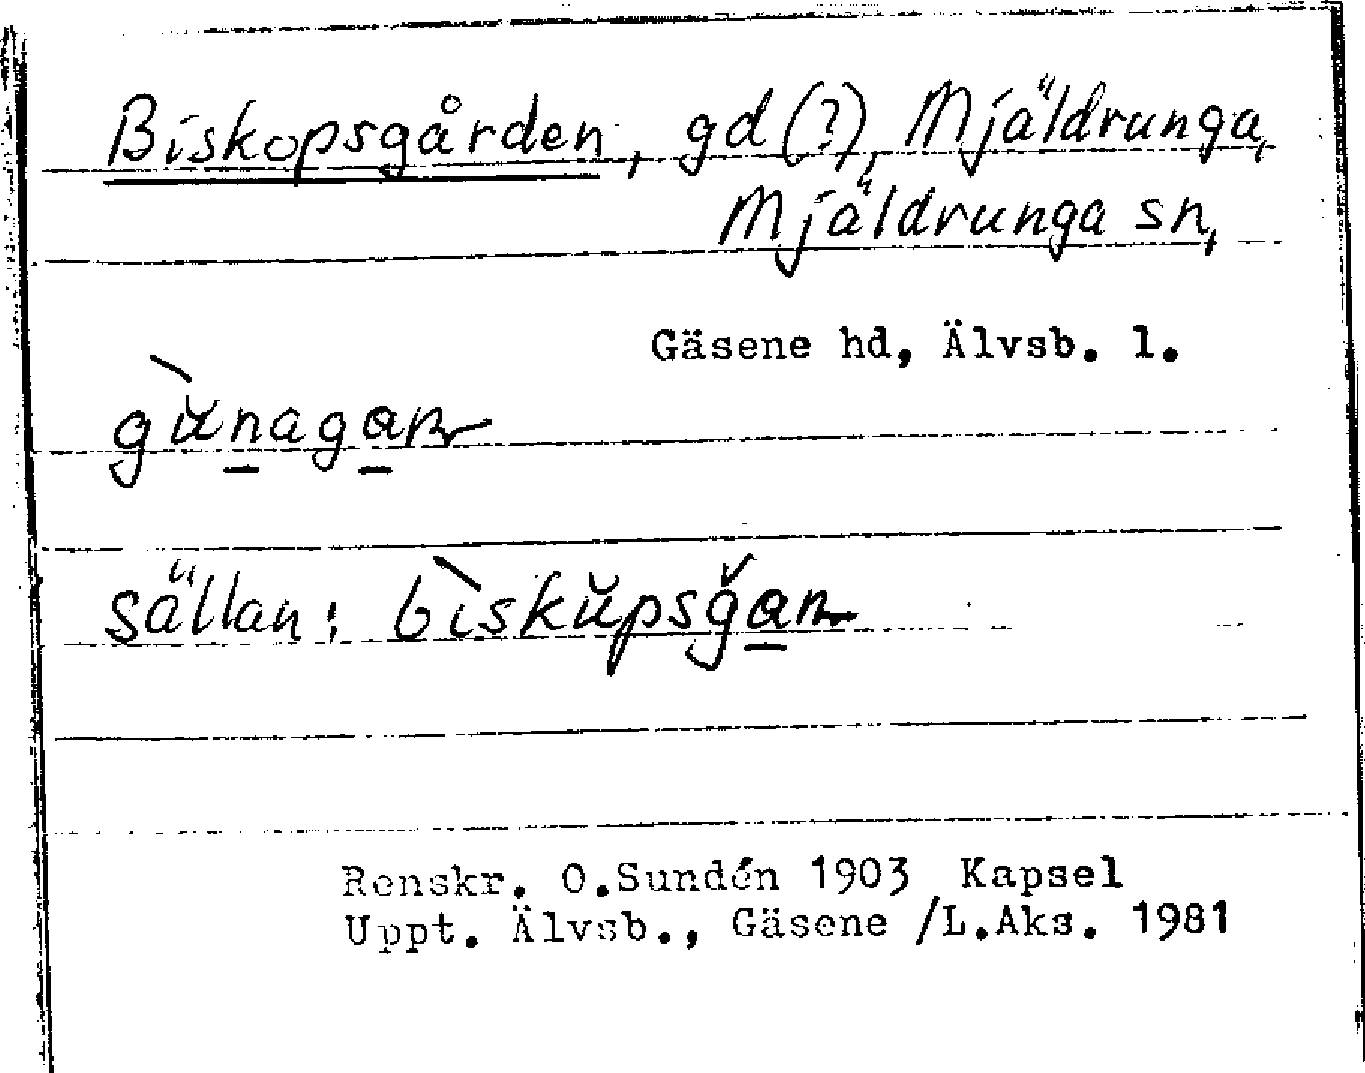 Biskopsgården, gd (?), Mjäldrunga,
Mjäldrunga sn,
Gäsene hd, Älvsb. l.
gùnagan
sällan: bìskŭpsğan
Renskr. O.Sundén 1903 Kapsel
Uppt. Älvsb., Gäsene /L.Aks. 1981